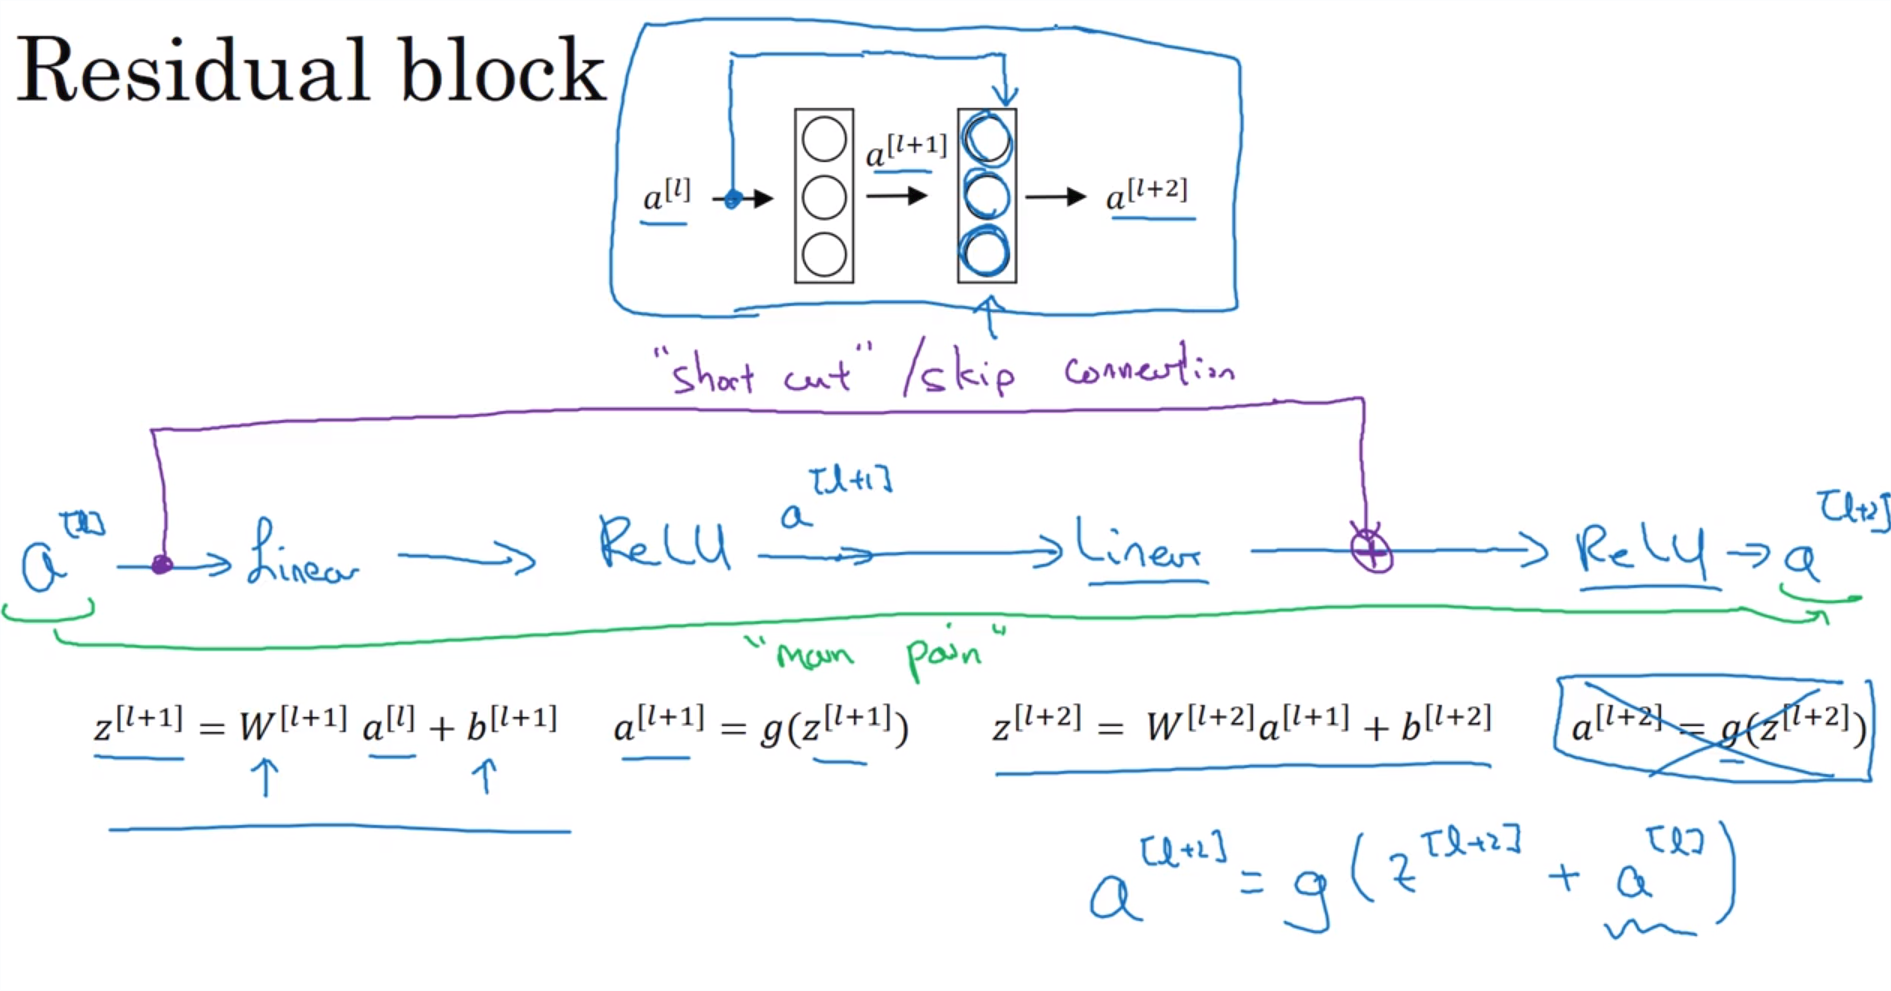 Residual block
a^[l] a^[l+1] a^[l+2]
"short cut" / skip connection
a^[l] → Linear → ReLU → a^[l+1] → Linear → ⊕ → ReLU → a^[l+2]
"main
z^[l+1] = W^[l+1] a^[l] + b^[l+1] a^[l+1] = g(z^[l+1]) z^[l+2] = W^[l+2]a^[l+1] + b^[l+2] a^[l+2] = g(z^[l+2])
a^[l+2] = g(z^[l+2] + a^[l])